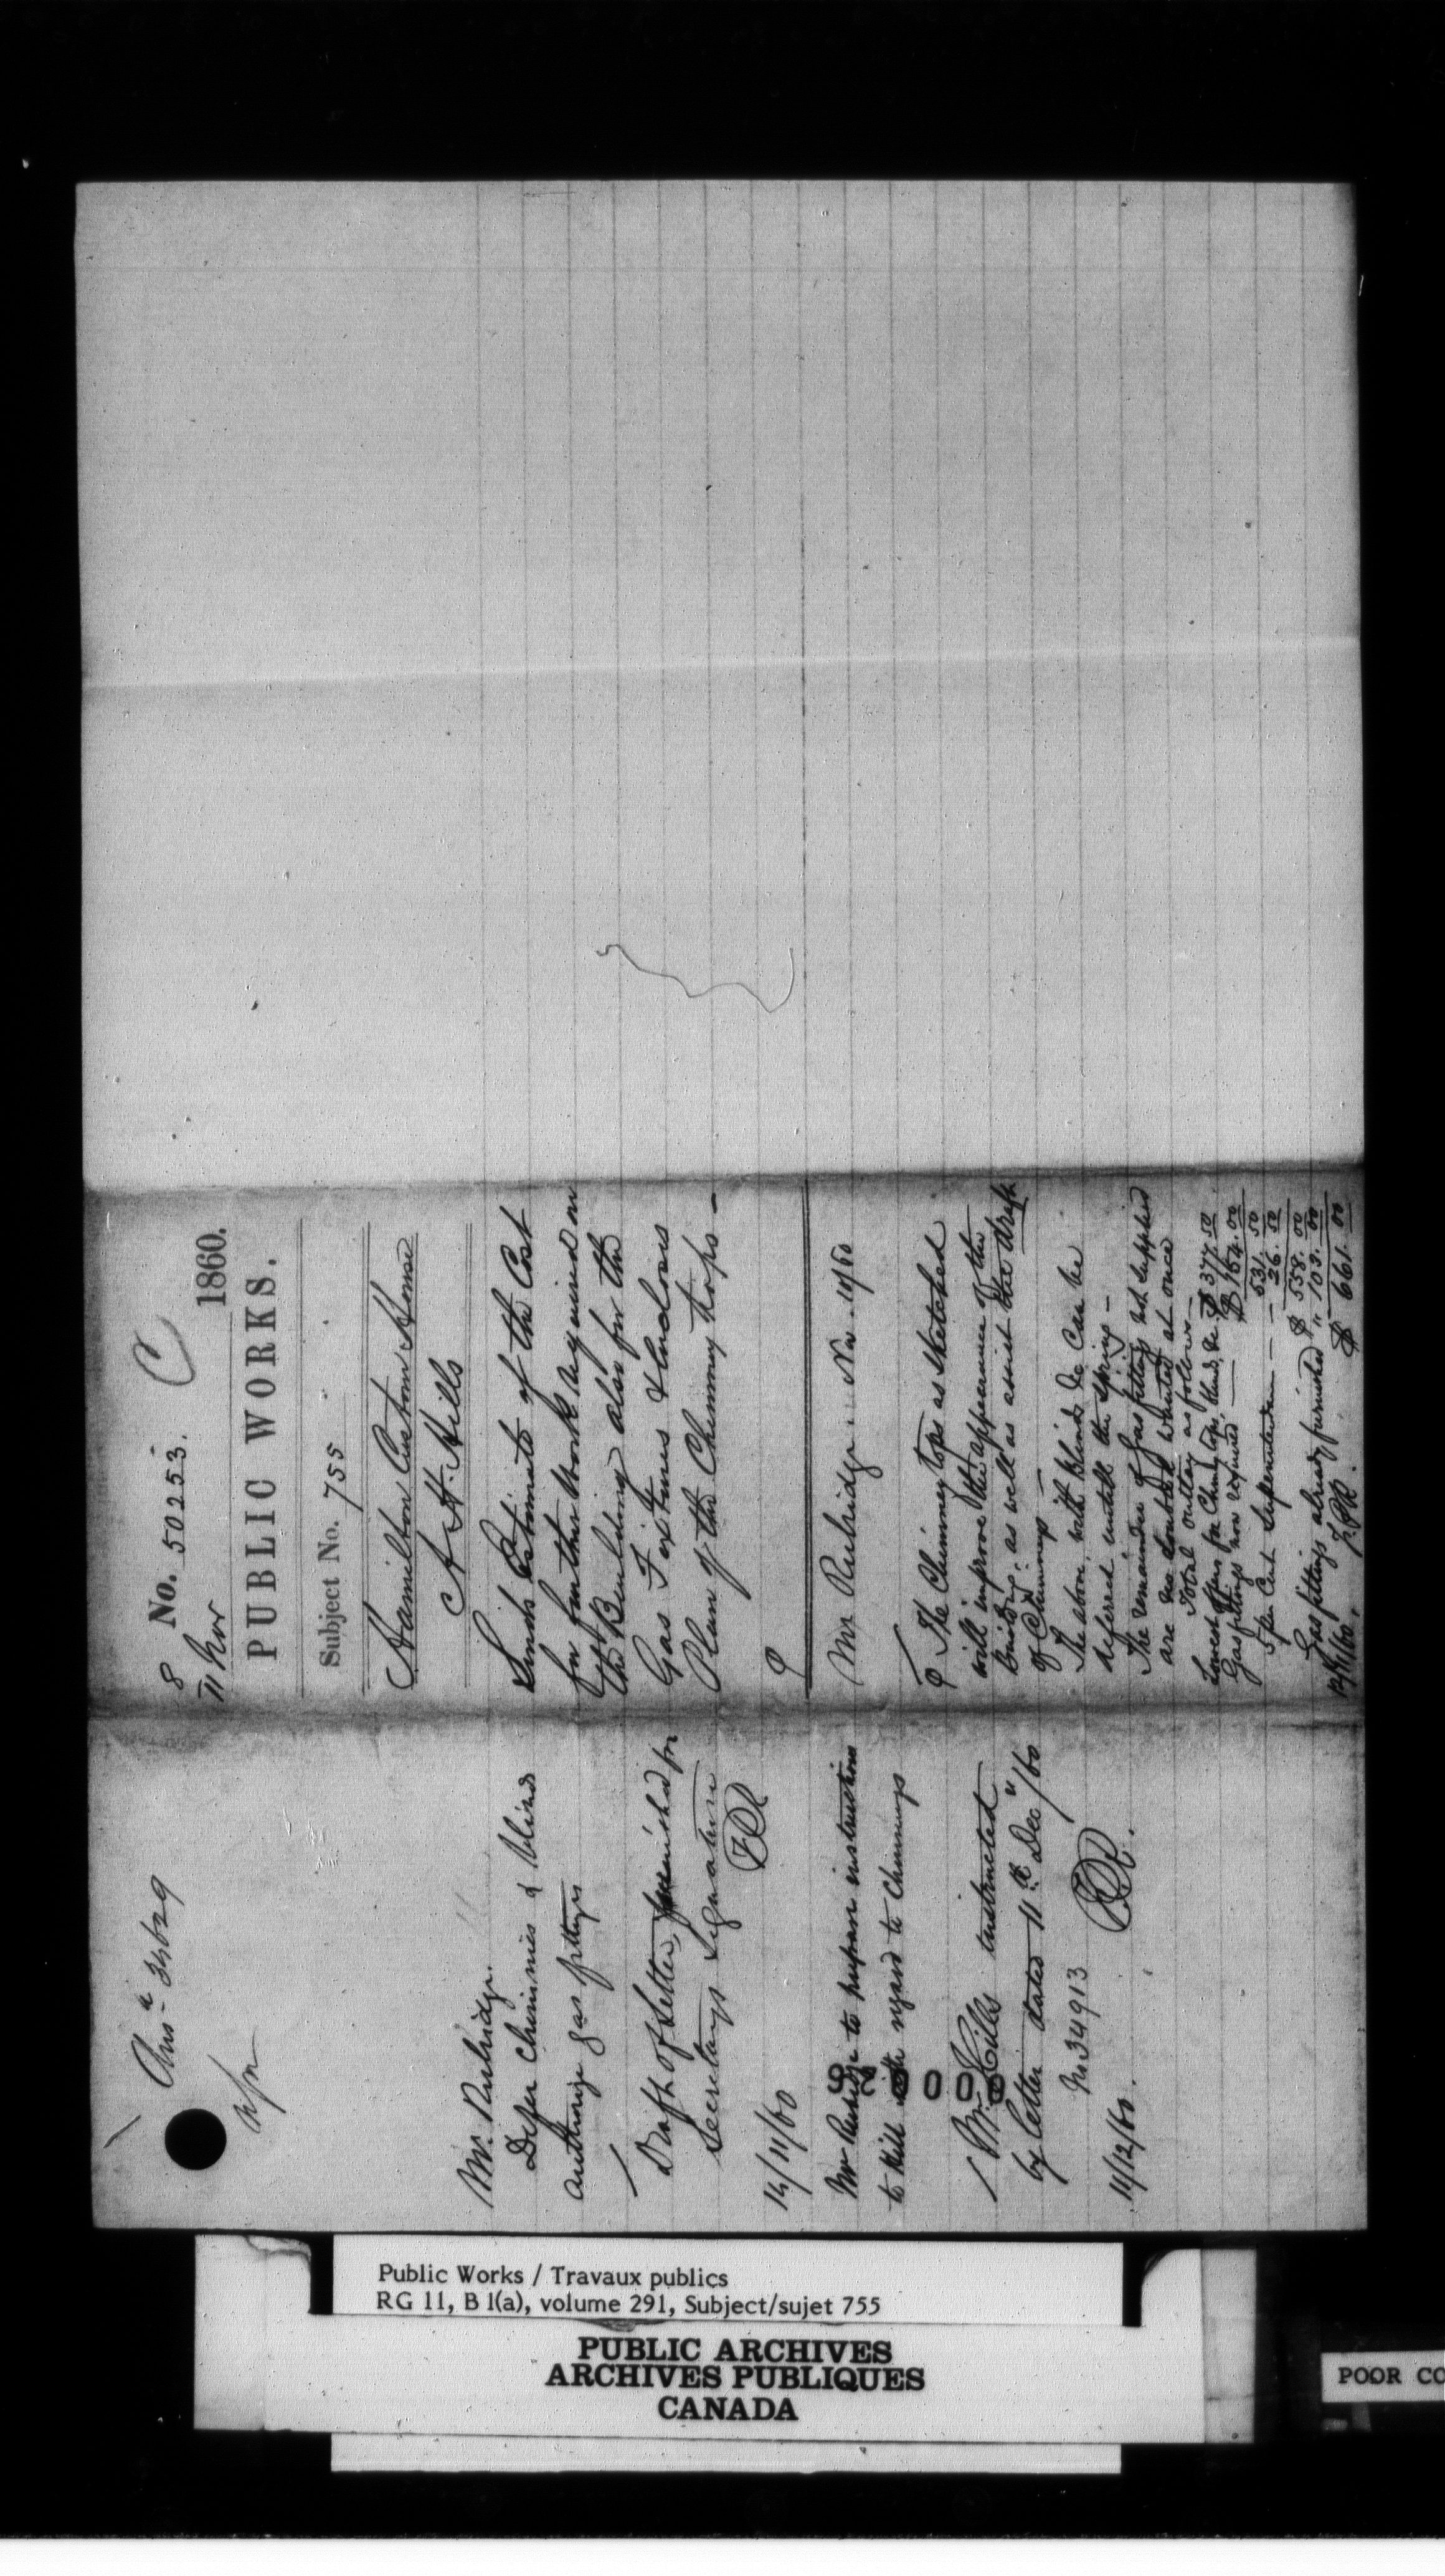 No. 50253.
8
11 Nov
1860.
C
PUBLIC WORKS.
Subject No. 755
Hamilton Custom House
A. H. Hills
Sends Estimate of the Cost
for further work required on
the Building also for the
Gas Fixtures & encloses
Plan of the Chimney tops —
Mr Rubidge Nov. 14/60
φ The Chimney tops as sketched
will improve the appearance of the
Building, as well as assist the draft
of Chimneys —
The above, with Blinds &c can be
defered untill the spring —
The remainder of Gas fittings not supplied
are no doubt wanted at once
Total outlay as follows —
Lowest offers for Chimney tops, blinds, &c. $ 377.50
Gas fittings now required — $ 154.00
531.50
5 per Cent Superintendence — 26.50
$ 558.00
Gas fittings already furnished " 103.00
$ 661.00
14/11/60. F.P.R.
Ansd 34629
Mr. Rubidge.
Defer Chimnies & blinds
authorize gas fittings
Draft of Letter, furnished for
Secretarys Signature
14/11/60
FPR
Mr Rubidge to prepare instructions
to Hill with regard to Chimneys
000026
Mr. Hills instructed
by letter dated 11th Decr/60
No 34913
11/12/60.
FPR.
Public Works / Travaux publics
RG 11, B 1(a), volume 291, Subject/sujet 755
PUBLIC ARCHIVES
ARCHIVES PUBLIQUES
CANADA
POOR CO